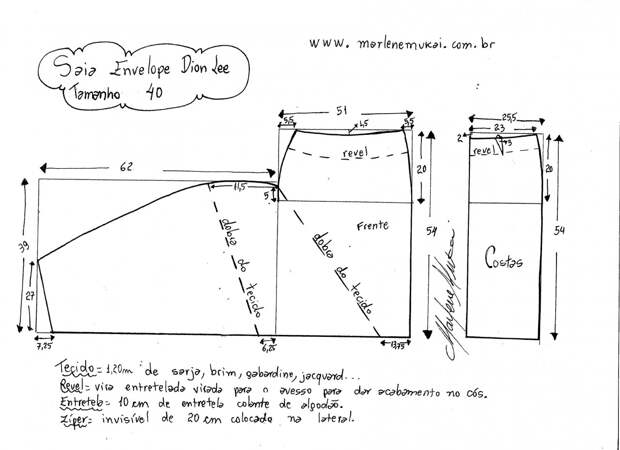 www. marlenemukai.com.br
Saia Envelope Dion Lee
Tamanho 40
51
5,5
4,5
3,5
revel
25,5
23
2
3
revel
20
20
62
11,5
5
Frente
54
54
Costas
39
27
dobra do tecido
dobra do tecido
Marlene Mukai
7,25
6,25
13,75
Tecido= 1,20m de sarja, brim, gabardine, jacquard...
Revel= vira entretelada virada para o avesso para dar acabamento no cós.
Entretela= 10 cm de entretela colante de algodão.
Zíper= invisível de 20 cm colocado na lateral.